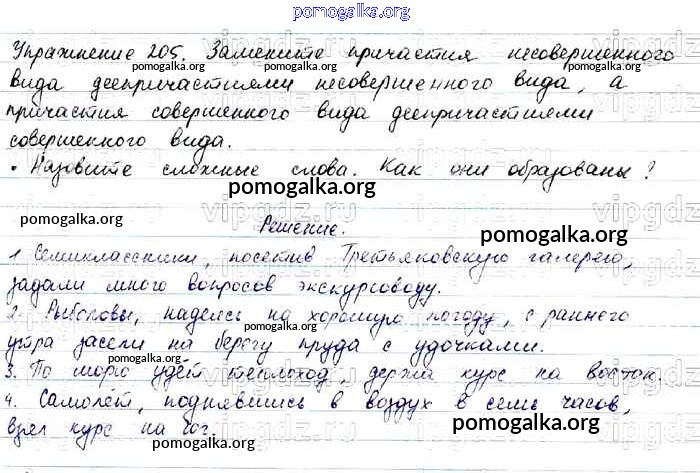 pomogalka.org
Упражнение 205. Замените причастия несовершенного
вида деепричастиями несовершенного вида, а
причастия совершенного вида деепричастиями
совершенного вида.
• Назовите сложные слова. Как они образованы?
pomogalka.org
Решение.
1. Семиклассники, посетив Третьяковскую галерею,
задали много вопросов экскурсоводу.
2. Рыболовы, надеясь на хорошую погоду, с раннего
утра засели на берегу пруда с удочками.
3. По морю идёт теплоход, держа курс на Восток.
4. Самолёт, поднявшись в воздух в семь часов,
взял курс на юг.
pomogalka.org